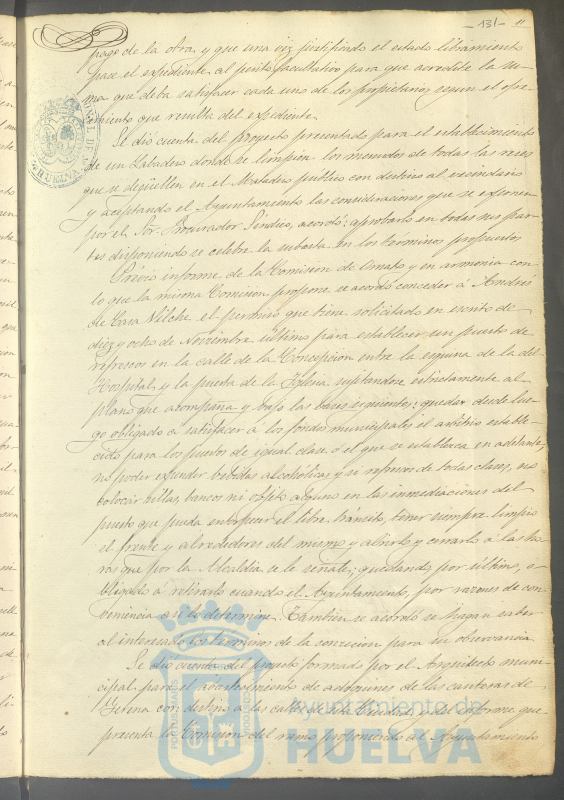 131 11
pago de la otra, y que una vez justificado el estado libramiento
pase el expediente al perito facultativo para que acredite la su-
ma que deba satisfacer cada uno de los propietarios segun el ofre-
cimiento que resulta del expediente.
Se dió cuenta del proyecto presentado para el establecimiento
de un Lavadero donde se limpien los menudos de todas las reses
que se degüellen en el Matadero público con destino al vecindario
y aceptando el Ayuntamiento las consideraciones que se exponen
por el Sor. Procurador Síndico, acordó: aprobarlo en todas sus par-
tes disponiendo se celebre la subasta en los términos propuestos
Prévio informe de la Comision de Ornato y en armonia con
lo que la misma Comision propone se acordó conceder á Andrés
de Casa Vilche el permiso que tiene solicitado en escrito de
diez y ocho de Noviembre último para establecer un puesto de
refrescos en la calle de la Concepcion entre la esquina de la del
Hospital y la puerta de la Iglesia sujetandose estrictamente al
plano que acompaña y bajo las bases siguientes: quedar desde lue-
go obligado á satisfacer á los fondos municipales el arbitrio estable-
cido para los puestos de igual clase ó el que se establezca en adelante,
no poder expender bebidas alcohólicas y si refrescos de todas clases, no
colocar sillas, bancos ni objeto alguno en las inmediaciones del
puesto que pueda entorpecer el libre tránsito, tener siempre limpio
el frente y alrededores del mismo y abrirlo y cerrarlo á las ho-
ras que por la Alcaldía se le señale; quedando, por último, o-
bligado á retirarlo cuando el Ayuntamiento, por razones de con-
veniencia así lo determine. Tambien se acordó se hagan saber
al interesado los términos de la concesion para su observancia
Se dió cuenta del proyecto formado por el Arquitecto muni-
cipal para el abastecimiento de adoquines de las canteras de
Gerena con destino á las calles de esta Ciudad, y del informe que
presenta la Comision del ramo proponiendo al Ayuntamiento
Ayuntamiento de
HUELVA